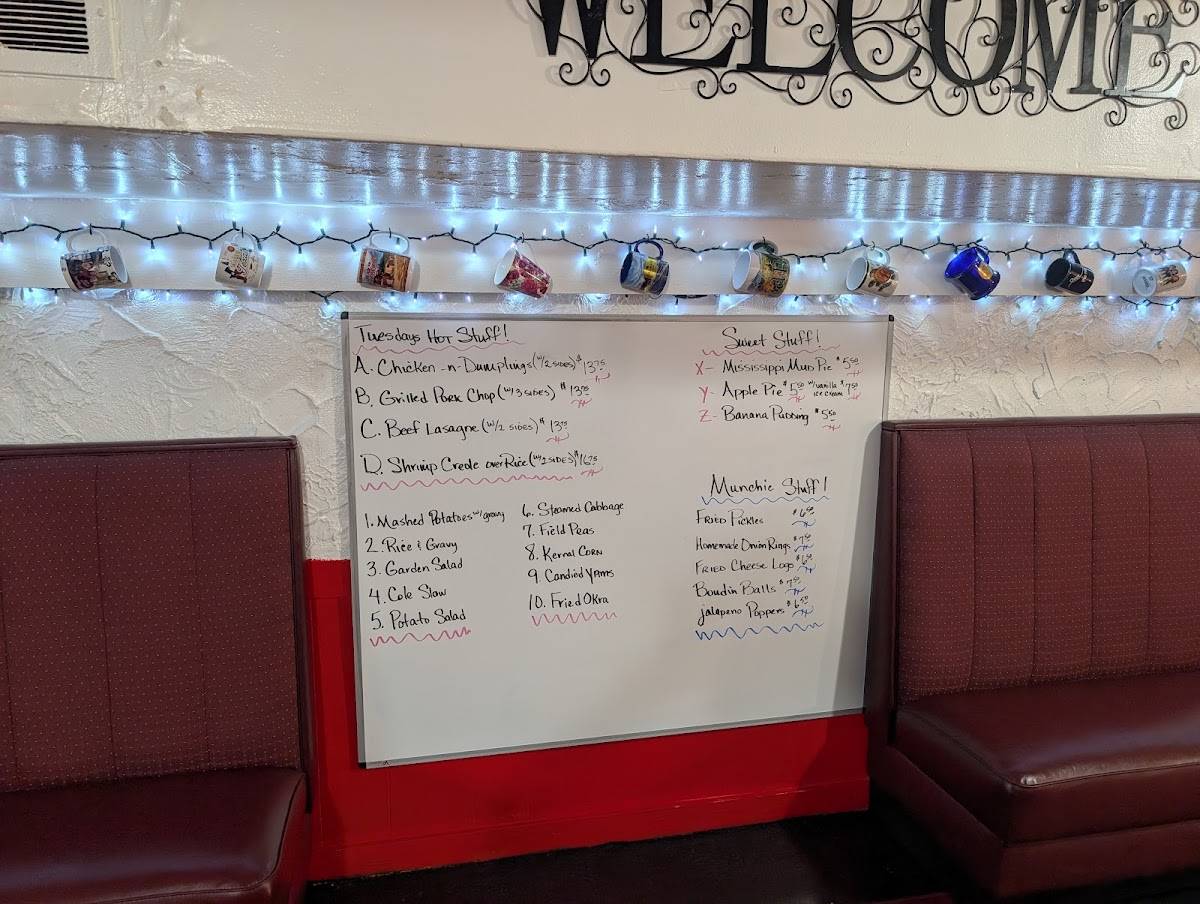 WELCOME
Tuesdays Hot Stuff!
A. Chicken-n-Dumplings (w/2 SIDES) $13.75
B. Grilled Pork Chop (w/3 SIDES) $13.95
C. Beef Lasagne (w/2 SIDES) $13.75
D. Shrimp Creole over Rice (w/2 SIDES) $16.75
1. Mashed Potatoes w/gravy
2. Rice & Gravy
3. Garden Salad
4. Cole Slaw
5. Potato Salad
6. Steamed Cabbage
7. Field Peas
8. Kernal Corn
9. Candied Yams
10. Fried Okra
Sweet Stuff!
X- Mississippi Mud Pie $5.50
Y- Apple Pie $5.50 w/vanilla ice cream $7.50
Z- Banana Pudding $5.50
Munchie Stuff!
Fried Pickles $6.50
Homemade Onion Rings $7.50
Fried Cheese Logs
Boudin Balls $7.50
Jalapeno Poppers $6.50